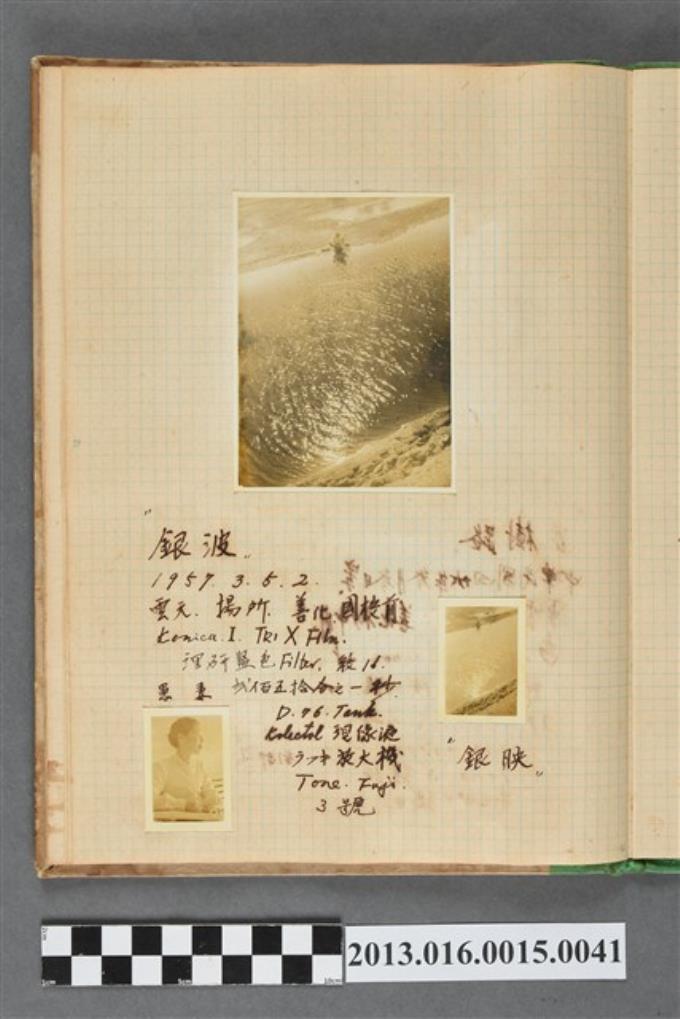 "銀波"
1957. 3. 5. 2.
雲天. 場所. 善化.國校前
Konica. I. TRI X Film.
藍色Filter.
弍佰五拾分之一秒
D. 76. Tank.
Kolectol 現像液
ラッキ 放大機
Tone. Fuji.
3 號
"銀映"
2013.016.0015.0041